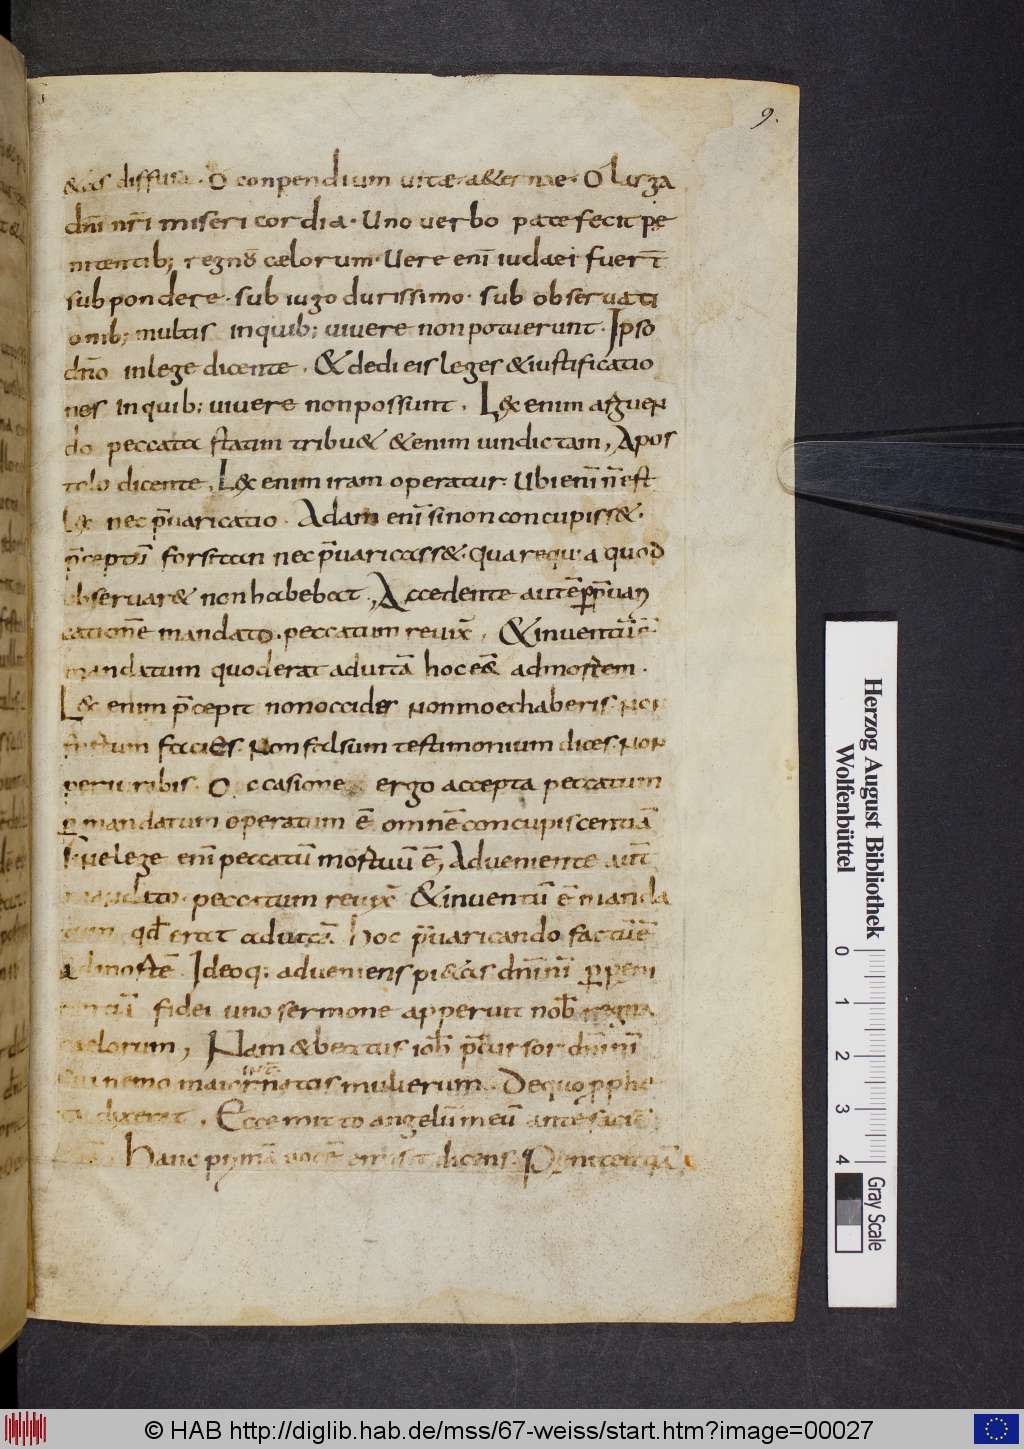 9.
&as diffusa. O conpendium uitae a&ernae. O larga
dñi nr̄i misericordia. Uno uerbo patefecit pę
nitentib; regnū caelorum. Uere eni̅ iudaei fuer̅t
sub pondere. sub iugo durissimo. sub obseruati
onib; multis in quib; uiuere non potuerunt. Ipso
dño in lege dicente. & dedi eis leges & iustificatio
nes in quib; uiuere non possunt. Lex enim arguen
do peccata statim tribu& & enim uindictam, Apos
tolo dicente. Lex enim iram operatur. Ubi eni̅ n̅ est
lex nec p̅uaricatio. Adam eni̅ si non concupiss&.
p̅ceptū forsitan nec p̅uaricass& quare qui a quod
obseruar& non habebat, Accedente autē p̱ p̅uari
catione mandato. peccatum reuix̅. & inuentū ē
mandatum quod erat ad uitā hoc eē ad mortem.
Lex enim p̅cepit non occides non moechaberis. non
furtum facies. Non falsum testimonium dices. non
periuribis. Occasione ergo accepta peccatum
p̱ mandatum operatum ē omnē concupiscentiā
Sine lege eni̅ peccatū mortuū ē, Adueniente aut̅
mandato peccatum reuix̅ & inuentū ē manda
tum qd̅ erat ad uitā. hoc p̅uaricando factū ē
ad mortē. Ideoq; adueniens pi&as dñi nr̄i p̱ peni
tentiā fidei uno sermone apperuit nob̅ regna
caelorum, Nam & beatus ioh̅ p̅cursor dñi nr̄i
cui nemo maior in natis mulierum. De quo pph&a
ta dixerat. Ecce mitto angelū meū ante faciē
Hanc primā uocē emisit dicens. Penitentiā
Herzog August Bibliothek
Wolfenbüttel
0 1 2 3 4
Gray Scale
© HAB http://diglib.hab.de/mss/67-weiss/start.htm?image=00027